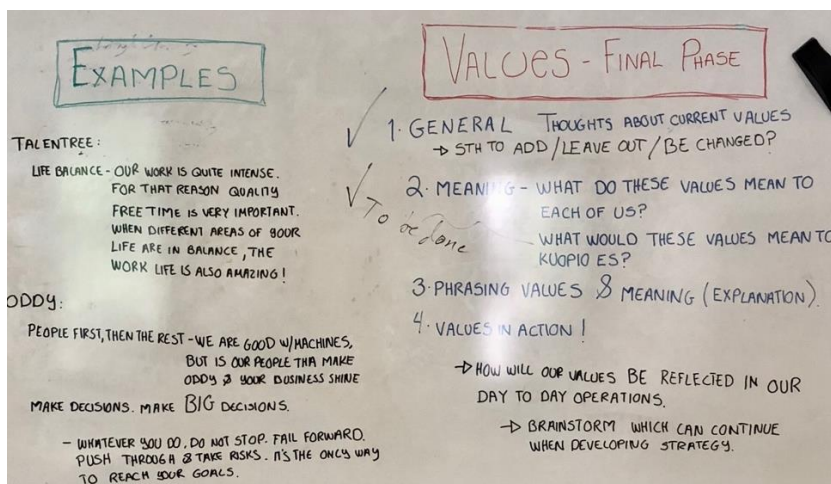 EXAMPLES
TALENTREE:
LIFE BALANCE - OUR WORK IS QUITE INTENSE.
FOR THAT REASON QUALITY
FREE TIME IS VERY IMPORTANT.
WHEN DIFFERENT AREAS OF YOUR
LIFE ARE IN BALANCE, THE
WORK LIFE IS ALSO AMAZING!
ODDY:
PEOPLE FIRST, THEN THE REST - WE ARE GOOD W/MACHINES,
BUT IS OUR PEOPLE THA MAKE
ODDY & YOUR BUSINESS SHINE
MAKE DECISIONS. MAKE BIG DECISIONS.
- WHATEVER YOU DO, DO NOT STOP. FAIL FORWARD.
PUSH THROUGH & TAKE RISKS. IT'S THE ONLY WAY
TO REACH YOUR GOALS.
VALUES - FINAL PHASE
✓ 1. GENERAL THOUGHTS ABOUT CURRENT VALUES
→ STH TO ADD / LEAVE OUT / BE CHANGED?
✓ 2. MEANING - WHAT DO THESE VALUES MEAN TO
EACH OF US?
To be done
WHAT WOULD THESE VALUES MEAN TO
KUOPIO ES?
3. PHRASING VALUES & MEANING (EXPLANATION).
4. VALUES IN ACTION!
→ HOW WILL OUR VALUES BE REFLECTED IN OUR
DAY TO DAY OPERATIONS.
→ BRAINSTORM WHICH CAN CONTINUE
WHEN DEVELOPING STRATEGY.